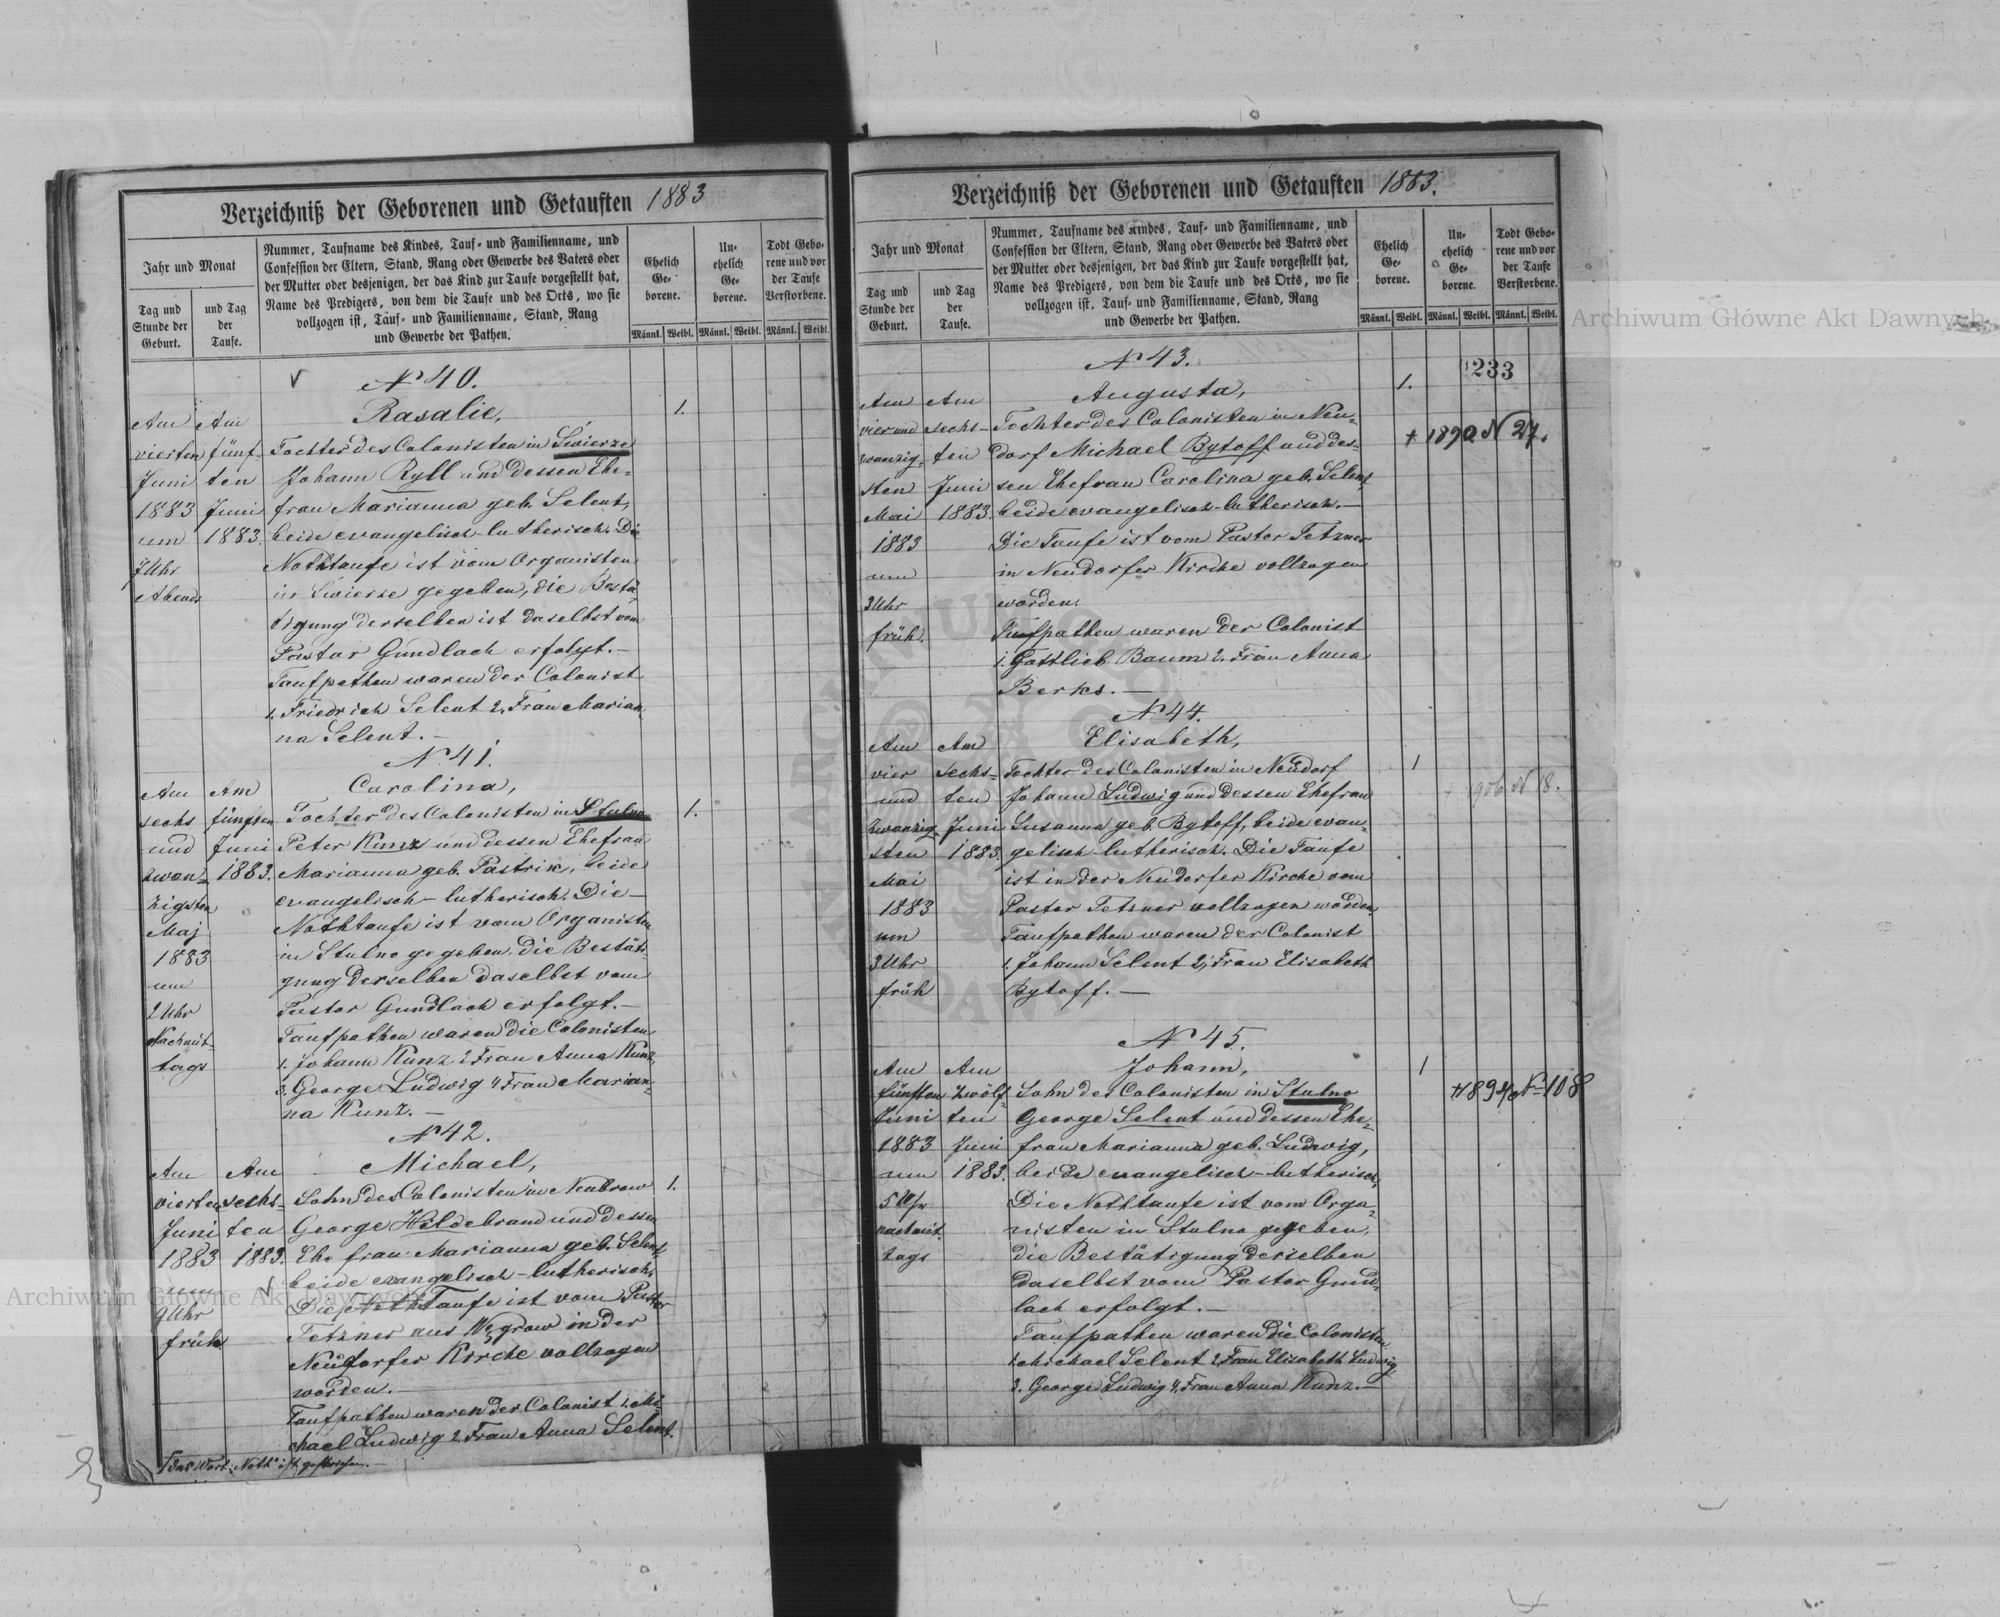 Verzeichniß der Geborenen und Getauften 1883
Jahr und Monat
Tag und Stunde der Geburt.
und Tag der Taufe.
Nummer, Taufname des Kindes, Tauf- und Familienname, und
Confession der Eltern, Stand, Rang oder Gewerbe des Vaters oder
der Mutter oder desjenigen, der das Kind zur Taufe vorgestellt hat,
Name des Predigers, von dem die Taufe und des Orts, wo sie
vollzogen ist, Tauf- und Familienname, Stand, Rang
und Gewerbe der Pathen.
Ehelich Geborene.
Unehelich Geborene.
Todt Geborene und vor der Taufe Verstorbene.
Männl. Weibl. Männl. Weibl. Männl. Weibl.
№ 40.
Am
vierten
Juni
1883
um
7 Uhr
Abends
Am
fünf-
ten
Juni
1883.
Rasalie,
Tochter des Colonisten in Swierze
Johann Ryll und dessen Ehe-
frau Marianna geb. Selent,
beide evangelisch-lutherisch. Die
Nothtaufe ist vom Organisten
in Swierze gegeben, die Bestä-
tigung derselben ist daselbst vom
Pastor Gundlach erfolgt.—
Taufpathen waren der Colonist
1. Friedrich Selent 2. Frau Marian-
na Selent.—
1.
№ 41.
Am
sechs
und
zwan-
zigsten
Maj
1883
um
2 Uhr
Nachmit-
tags
Am
fünften
Juni
1883.
Carolina,
Tochter des Colonisten in Stulno
Peter Kunz und dessen Ehefrau
Marianna geb. Pastrik, beide
evangelisch-lutherisch. Die—
Nothtaufe ist vom Organisten
in Stulno gegeben, die Bestäti-
gung derselben daselbst vom
Pastor Gundlach erfolgt.—
Taufpathen waren die Colonisten
1. Johann Kunz 2 Frau Anna Kunz
3. George Ludwig 4 Frau Marian-
na Kunz.—
1.
№ 42.
Am
vierten
Juni
1883
um
9 Uhr
früh
Am
sechs-
ten
1883.
Michael,
Sohn des Colonisten in Neubrow
George Hildebrand und dessen
Ehefrau Marianna geb. Selent
beide evangelisch-lutherisch.
Die Noth Taufe ist vom Pastor
Tetzner aus Węgrow in der
Neudorfer Kirche vollzogen
worden.—
Taufpathen waren der Colonist 1. Mi-
chael Ludwig 2 Frau Anna Selent.
1.
Das Wort "Noth" ist gestrichen.—
Verzeichniß der Geborenen und Getauften 1883.
Jahr und Monat
Tag und Stunde der Geburt.
und Tag der Taufe.
Nummer, Taufname des Kindes, Tauf- und Familienname, und
Confession der Eltern, Stand, Rang oder Gewerbe des Vaters oder
der Mutter oder desjenigen, der das Kind zur Taufe vorgestellt hat,
Name des Predigers, von dem die Taufe und des Orts, wo sie
vollzogen ist, Tauf- und Familienname, Stand, Rang
und Gewerbe der Pathen.
Ehelich Geborene.
Unehelich Geborene.
Todt Geborene und vor der Taufe Verstorbene.
Männl. Weibl. Männl. Weibl. Männl. Weibl.
233
№ 43.
Am
vier und
zwanzig-
sten
Mai
1883
um
3 Uhr
früh.
Am
sechs-
ten
Juni
1883.
Augusta,
Tochter des Colonisten in Neu-
dorf Michael Bytoff und des-
sen Ehefrau Carolina geb. Selent,
beide evangelisch-lutherisch.—
Die Taufe ist vom Pastor Tetzner
in Neudorfer Kirche vollzogen
worden.
Taufpathen waren der Colonist
1. Gottlieb Baum 2. Frau Anna
Berks.—
1.
+ 1890 № 27.
№ 44.
Am
vier
und
zwanzig-
sten
Mai
1883
um
3 Uhr
früh
Am
sechs-
ten
Juni
1883.
Elisabeth,
Tochter des Colonisten in Neudorf
Johann Ludwig und dessen Ehefrau
Susanna geb. Bytoff, beide evan-
gelisch-lutherisch. Die Taufe
ist in der Neudorfer Kirche vom
Pastor Tetzner vollzogen worden.
Taufpathen waren der Colonist
1. Johann Selent 2, Frau Elisabeth
Bytoff.—
1
№ 45.
Am
fünften
Juni
1883
um
5 Uhr
nachmit-
tags
Am
zwölf-
ten
Juni
1883.
Johann,
Sohn des Colonisten in Stulno
George Selent und dessen Ehe-
frau Marianna geb. Ludwig,
beide evangelisch-lutherisch,
Die Nothtaufe ist vom Orga-
nisten in Stulno gegeben,
die Bestätigung derselben
daselbst vom Pastor Gund-
lach erfolgt.—
Taufpathen waren die Colonisten
1. Michael Selent 2. Frau Elisabeth Ludwig
3. George Ludwig 4. Frau Anna Kunz.—
1
+ 1894 № 108
Archiwum Główne Akt Dawnych
Archiwum Główne Akt Dawnych